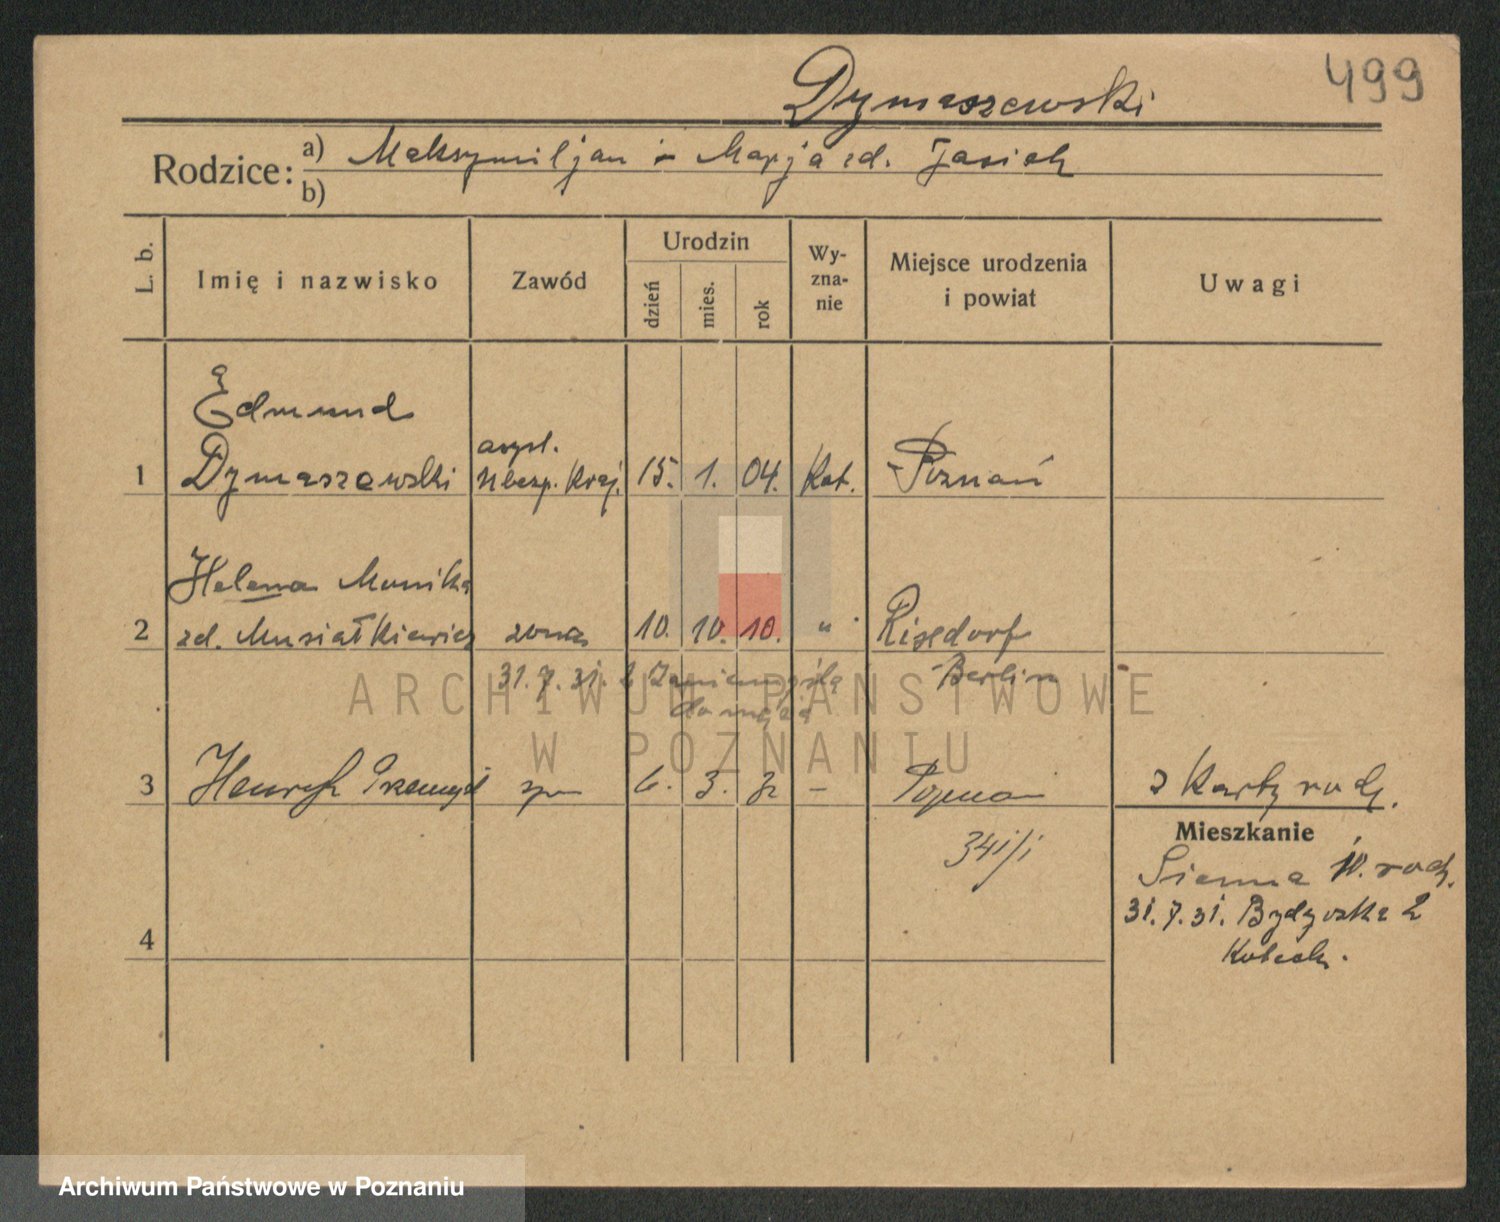 499
Dymaszewski
Rodzice: a) Maksymiljan i Marja zd. Jasiak
b)
L. b.
Imię i nazwisko
Zawód
Urodzin
dzień
mies.
rok
Wy-
zna-
nie
Miejsce urodzenia
i powiat
Uwagi
Edmund
1 Dymaszewski asyst. Ubezp. Kraj. 15. 1. 04. Kat. Poznań
Helena Monika
2 zd. Musiałkiewicz żona 10. 10. 10. " Rixdorf
31. 7. 31. z Zaniemyśla Berlin
do męża
3 Henryk Przemysł syn 6. 3. 32 – Poznań z Karty rodz.
34 i/i
Mieszkanie
Sienna 10. rodz.
31. 7. 31. Bydgoska 2
4
ARCHIWUM PAŃSTWOWE
W POZNANIU
Archiwum Państwowe w Poznaniu